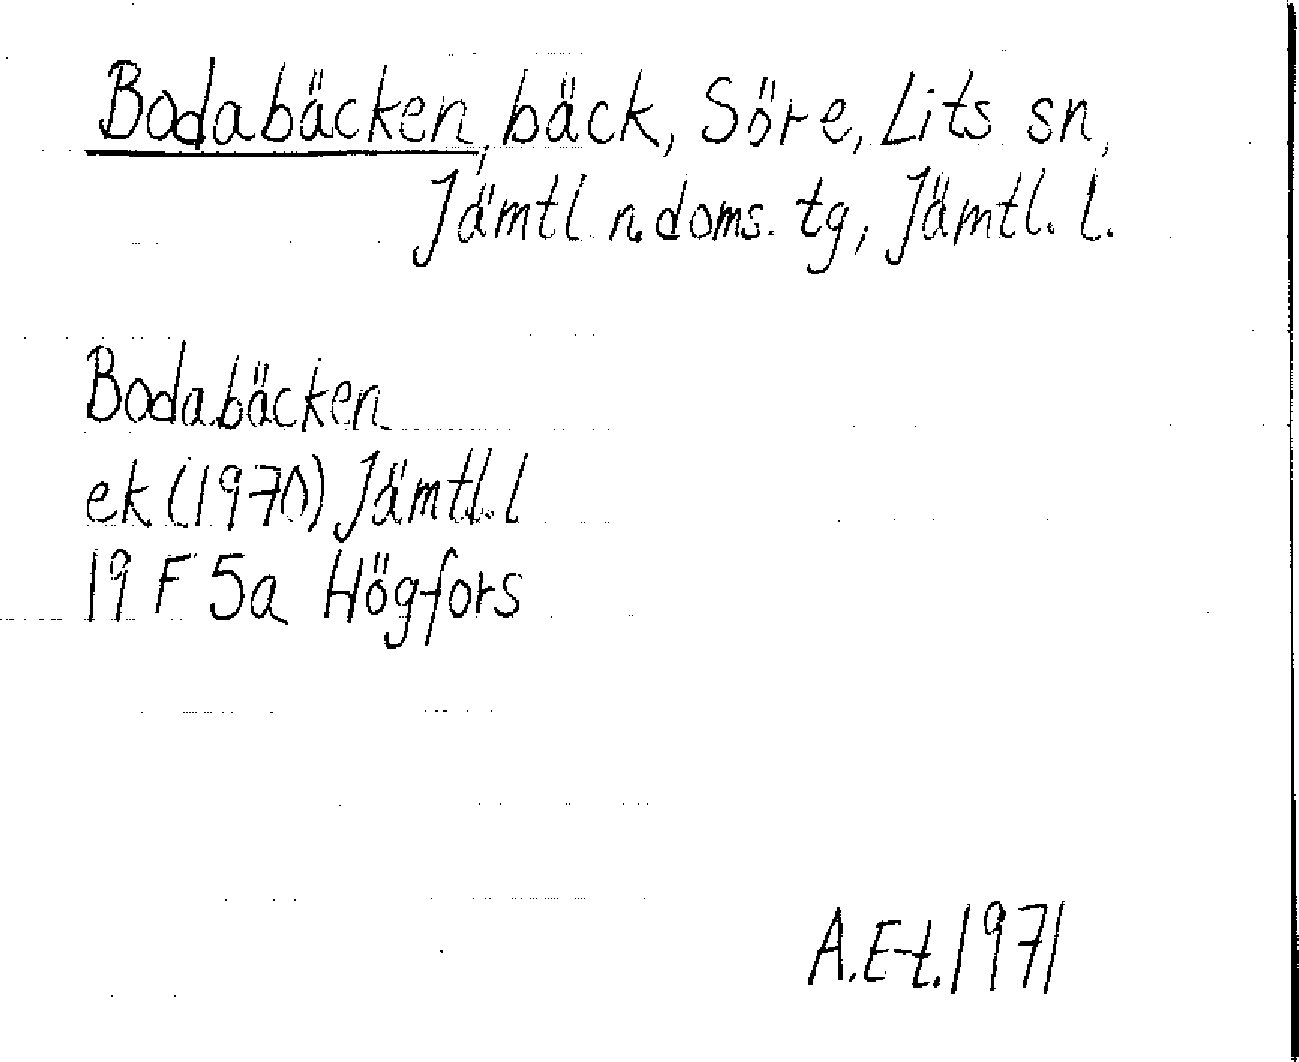 Bodabäcken, bäck, Söre, Lits sn,
Jämtl. n. doms. tg, Jämtl. l.
Bodabäcken
ek (1970) Jämtl. l
19 F 5a Högfors
A.E-t. 1971